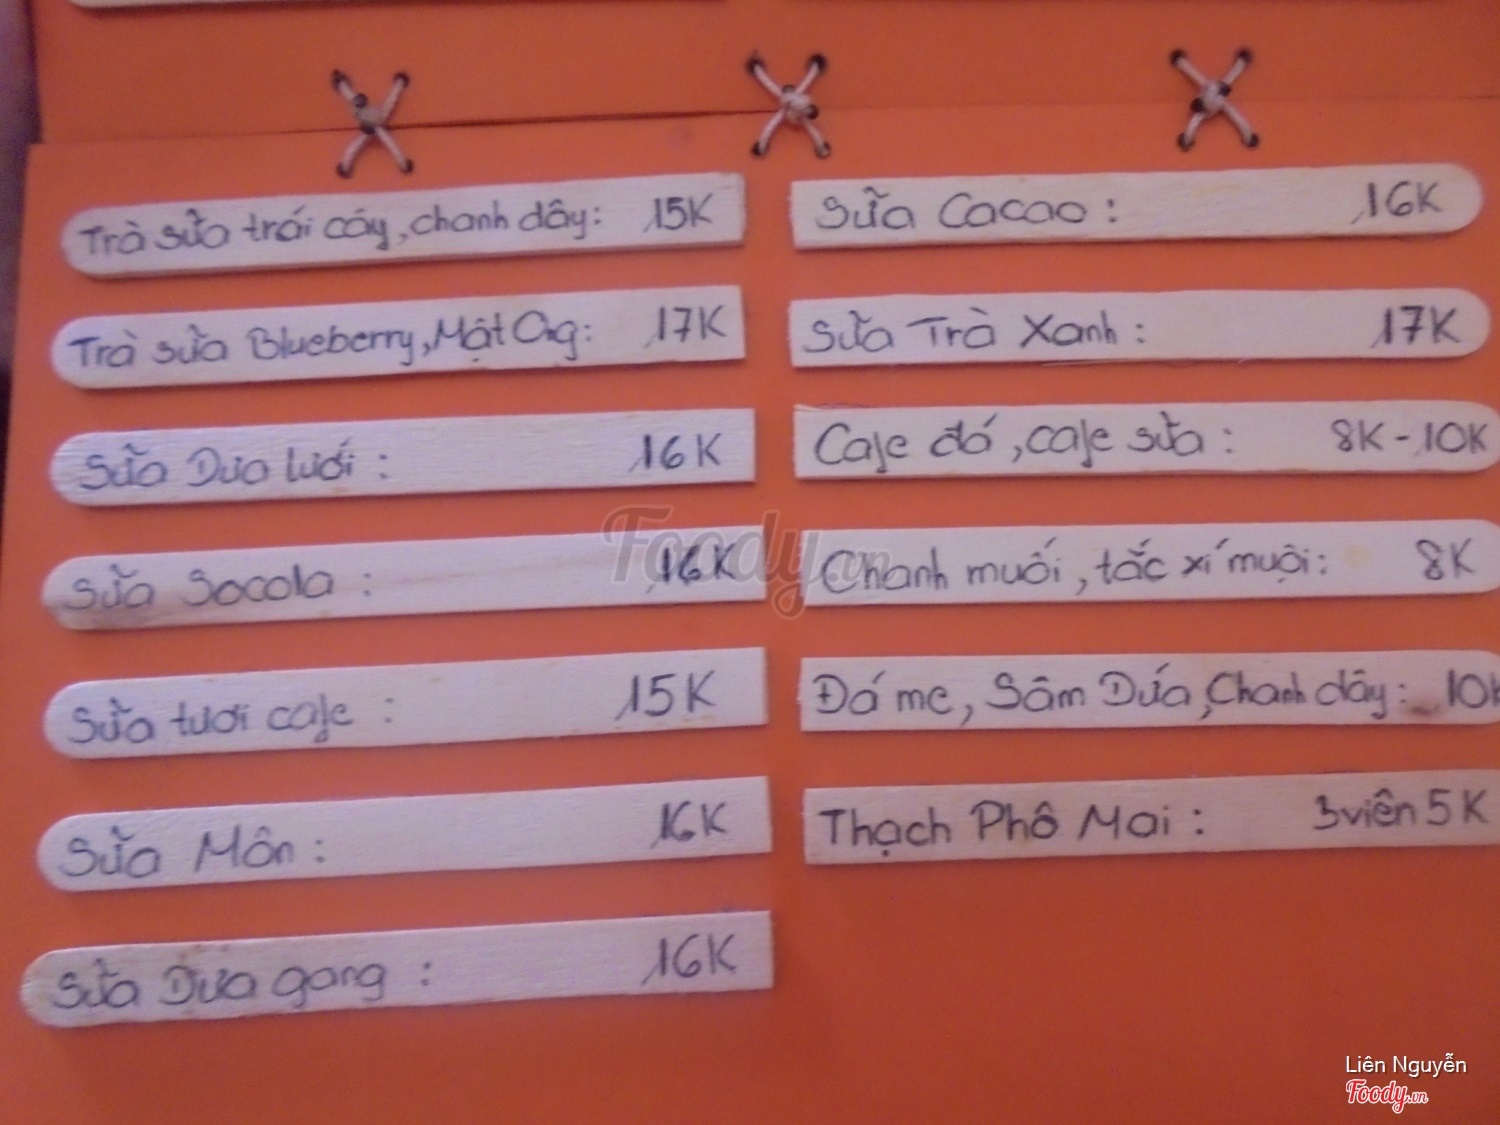 Trà sữa trái cây, chanh dây: 15K
Trà sữa Blueberry, Mật Ong: 17K
Sữa Dưa lưới : 16K
Sữa Socola : 16K
Sữa tươi cafe : 15K
Sữa Môn : 16K
Sữa Dưa gang : 16K
Sữa Cacao : 16K
Sữa Trà Xanh : 17K
Cafe đá, cafe sữa : 8K - 10K
Chanh muối, tắc xí muội : 8K
Đá me, Sâm Dứa, Chanh dây : 10K
Thạch Phô Mai : 3 viên 5K
Foody.vn
Liên Nguyễn
Foody.vn